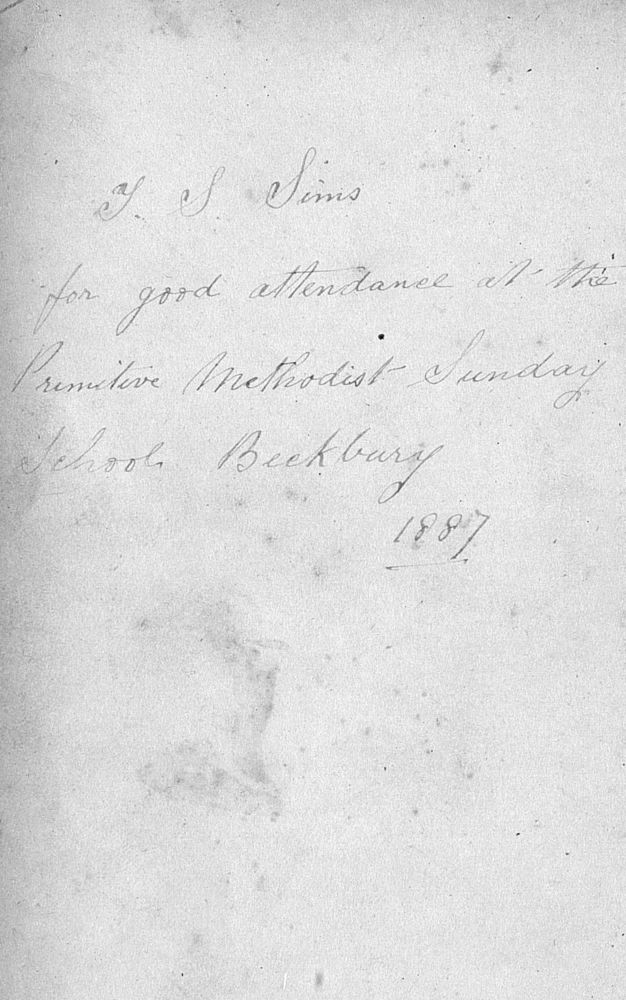 T. S. Sims
for good attendance at the
Primitive Methodist Sunday
School Beckbury
1887